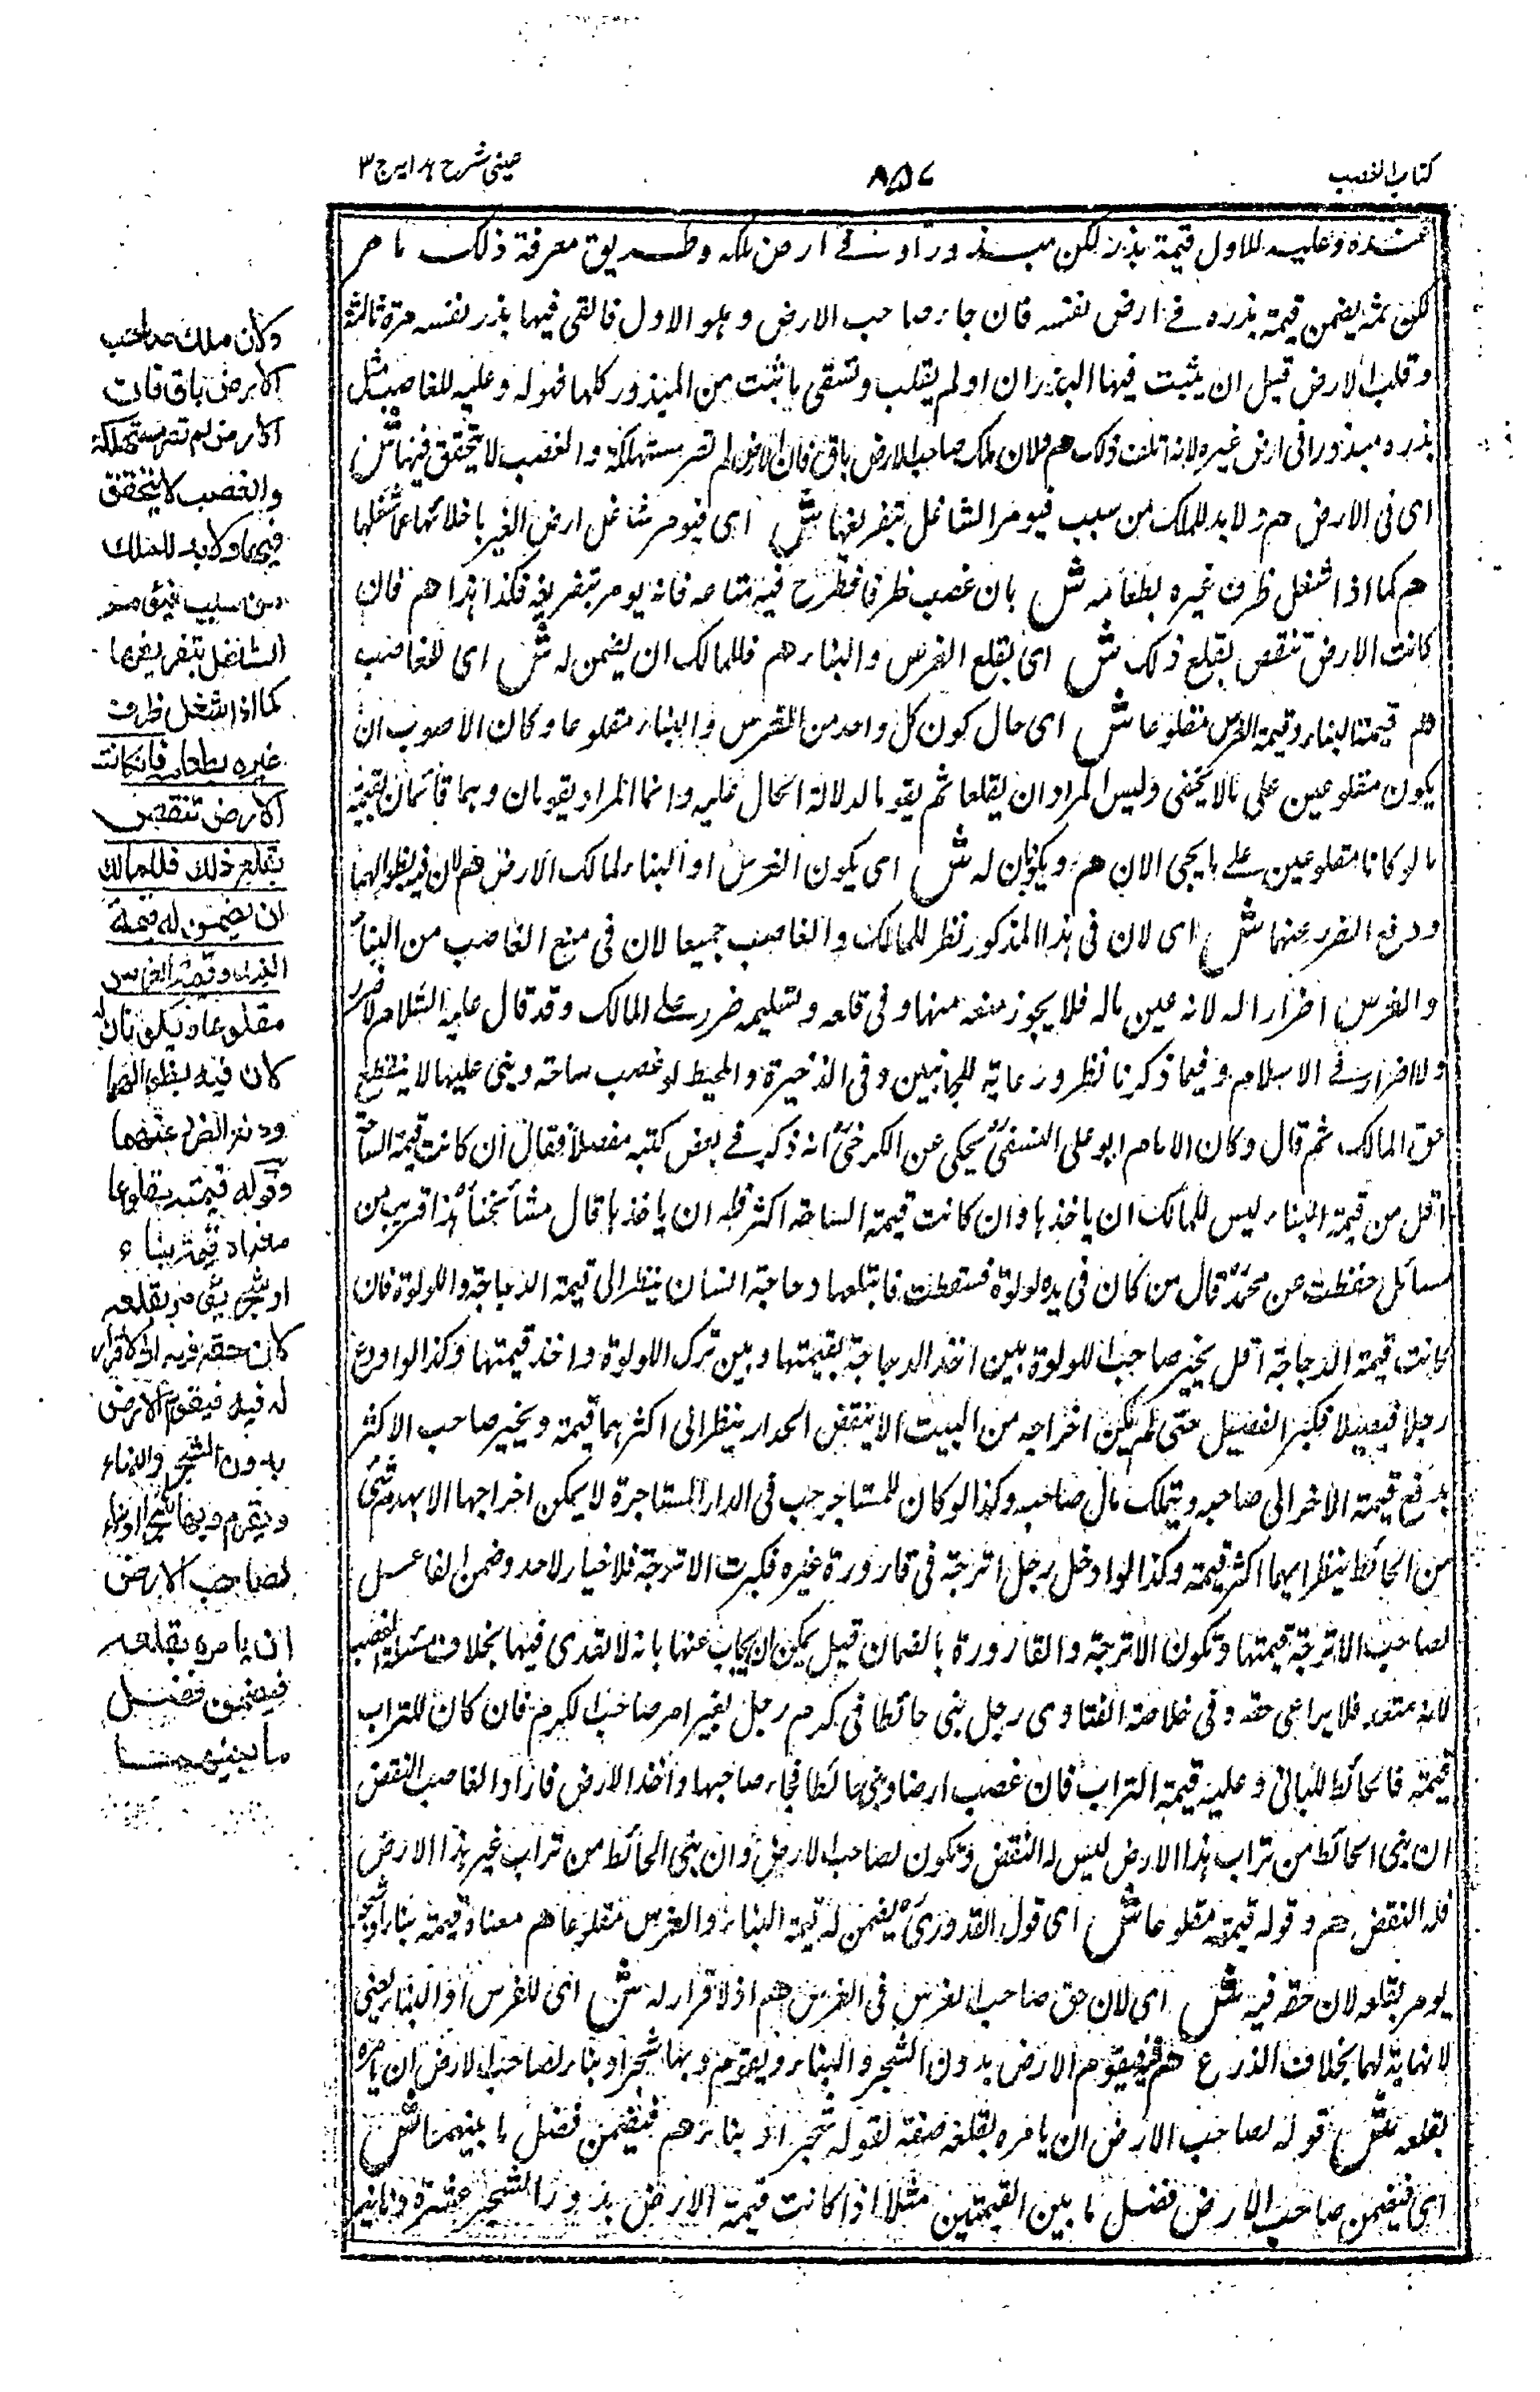 كتاب الغصب
٨٥٧
عيني شرح هدايه ج ٣
عنده وعليه للاول قيمة بذر لكن مبذورا وفي ارض ملكه وطريق معرفة ذلك ما مر
لكن ثمه يضمن قيمة بذره في ارض نفسه فان جاء صاحب الارض وهو الاول فالقى فيها بذر نفسه مرة ثالثة
وقلب الارض قبل ان يثبت فيها البذران او لم يقلب وتسقى ما ثبت من المبذور كلها فهو له وعليه للغاصب مثل
بذره مبذورا في ارض غيره لانه اتلف ذلك هم ولان ملك صاحب الارض باق فان الارض لم تصر مستهلكة والغصب لا يتحقق فيها ش
اى فى الارض هم ولا بد للملك من سبب فيومر الشاغل بتفريغها ش اى فيومر شاغل ارض الغير باخلائها عما شغلها
هم كما اذا شغل ظرف غيره بطعامه ش بان غصب ظرفا فطرح فيه متاعه فانه يومر بتفريغه فكذا هذا هم فان
كانت الارض تنقص بقلع ذلك ش اى بقلع الغرس والبناء هم فللمالك ان يضمن له ش اى للغاصب
هم قيمة البناء وقيمة الغرس مقلوعا ش اى حال كون كل واحد من الغرس والبناء مقلوعا وكان الاصوب ان
يكون مقلوعين على ما لا يخفى وليس المراد ان يقلعا ثم يقوما لدلالة الحال عليه وانما المراد يقومان وهما قائمان بقيمة
ما لو كانا مقلوعين على ما يجي الان هم ويكونان له ش اى يكون الغرس او البناء لمالك الارض هم لان فيه نظر لهما
ودفع الضرر عنهما ش اى لان فى هذا المذكور نظر للمالك والغاصب جميعا لان فى منع الغاصب من البناء
والغرس اضرارا له لانه عين ماله فلا يجوز منعه منها وفى قلعه وتسليمه ضرر على المالك وقد قال عليه السلام لا ضرر
ولا اضرار فى الاسلام وفيما ذكرنا نظر ورعاية للجانبين وفى الذخيرة والمحيط لو غصب ساحة وبنى عليها لا ينقطع
حق المالك ثم قال وكان الامام ابو على النسفى يحكى عن الكرخى انه ذكر فى بعض كتبه مفصلا فقال ان كانت قيمة الساحة
اقل من قيمة البناء ليس للمالك ان ياخذها وان كانت قيمة الساحة اكثر فله ان ياخذها قال مشائخنا هذا قريب من
مسائل حفظت عن محمد قال من كان فى يده لولوة فسقطت فابتلعها دجاجة انسان ينظر الى قيمة الدجاجة واللولوة فان
كانت قيمة الدجاجة اقل يخير صاحب اللولوة بين اخذ الدجاجة بقيمتها وبين ترك اللولوة واخذ قيمتها وكذا لو اودع
رجلا فصيلا فكبر الفصيل حتى لم يكن اخراجه من البيت الا ينقض الجدار ينظر الى اكثرهما قيمة ويخير صاحب الاكثر
بدفع قيمة الاخر الى صاحبه ويتملك مال صاحبه وكذا لو كان للمستاجر حب فى الدار المستاجرة لا يمكن اخراجها الا بهدم شئ
من الحائط ينظر ايهما اكثر قيمة وكذا لو ادخل رجل اترجة فى قارورة غيره فكبرت الاترجة فلا خيار لاحد وضمن الفاعل
لصاحب الاترجة قيمتها وتكون الاترجة والقارورة بالضمان قيل يمكن ان يجاب عنها بانه لا تعدى فيها بخلاف مسئلة الغصب
لانه متعد فلا يراعى حقه وفى خلاصة الفتاوى رجل بنى حائطا فى كرم رجل بغير امر صاحب الكرم فان كان للتراب
قيمة فالحائط للبانى وعليه قيمة التراب فان غصب ارضا وبنى حائطا فجاء صاحبها واخذ الارض فاراد الغاصب النقض
ان بنى الحائط من تراب هذا الارض ليس له النقض وتكون لصاحب الارض وان بنى الحائط من تراب غير هذا الارض
فله النقض هم وقوله قيمته مقلوعا ش اى قول القدورى يضمن له قيمة البناء والغرس مقلوعا هم معناه قيمة بناء او شجر
يومر بقلعه لان حقه فيه ش اى لان حق صاحب الغرس فى الغرس هم اذ لا قرار له ش اى للغرس او البناء يعنى
لا نهاية لهما بخلاف الزرع هم فيقوم الارض بدون الشجر والبناء ويقوم وبها شجر او بناء لصاحب الارض ان يامره
بقلعه ش قوله لصاحب الارض ان يامره بقلعه صفة لقوله شجر او بناء هم فيضمن فضل ما بينهما ش
اى فيضمن صاحب الارض فضل ما بين القيمتين مثلا اذا كانت قيمة الارض بدون الشجر عشرة دنانير
ولان ملك صاحب
الارض باق فان
الارض لم تصر مستهلكة
والغصب لا يتحقق
فيها ولا بد للملك
من سبب فيومر
الشاغل بتفريغها
كما اذا شغل ظرف
غيره بطعامه فان كانت
الارض تنقص
بقلع ذلك فللمالك
ان يضمن له قيمة
البناء وقيمة الغرس
مقلوعا ويكونان له
لان فيه نظر الهما
ودفع الضرر عنهما
وقوله قيمته مقلوعا
معناه قيمة بناء
او شجر يؤمر بقلعه
لان حقه فيه اذ لا قرار
له فيه فيقوم الارض
بدون الشجر والبناء
ويقوم وبها شجر او بناء
لصاحب الارض
ان يامره بقلعه
فيضمن فضل
ما بينهما